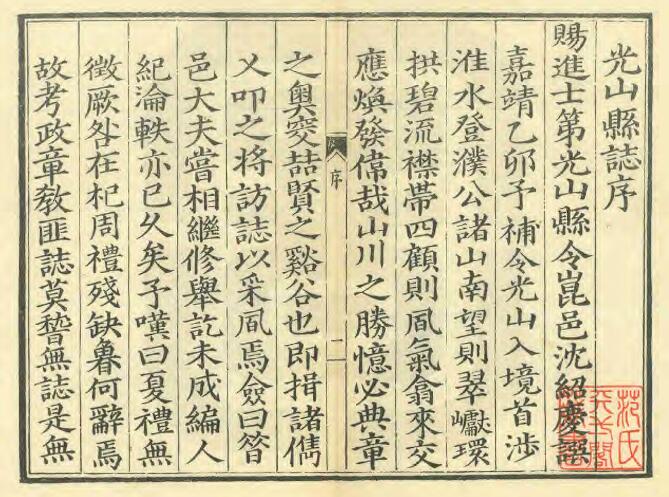 光山縣誌序
賜進士第光山縣令崑邑沈紹慶譔
嘉靖乙卯予補令光山入境首渉
淮水登濮公諸山南望則翠巘環
拱碧流襟帶四顧則風氣翕來交
應煥發偉哉山川之勝憶必典章
序
之奥窔喆賢之谿谷也即揖諸儁
乂叩之將訪誌以采風焉僉曰
邑大夫嘗相繼修舉訖未成編人
紀淪軼亦已久矣予嘆曰夏禮無
徵厥咎在杞周禮殘缺魯何辭焉
故考政章敎匪誌莫無誌是無
范氏天一閣藏書